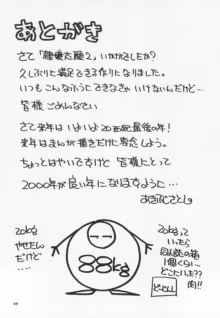 あとがき
さて「熱愛太閤2」いかがでしたか?
久しぶりに満足できる作りになりました。
いつもこんなふうにできなきゃいけないんだけど…
皆様ごめんなさい
さて来年はいよいよ20世紀最後の年!
来年はまんが描きだけに専念しよう。
ちょっとはやいですけど皆様にとって
2000年が良い年になりますように…
20kg
やせたん
だけど…
88kg
20kgって
いったら
同人誌の箱
1個くらい…
どこいった??
肉!!